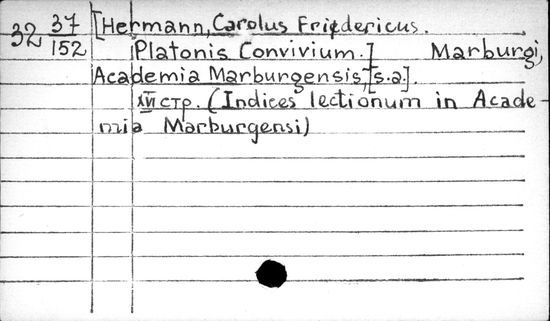 32 37/152 [Hermann, Carolus Friedericus.
Platonis Convivium.] Marburgi,
Academia Marburgensis, [s.a.].
XVI стр. (Indices lectionum in Acade-
mia Marburgensi)